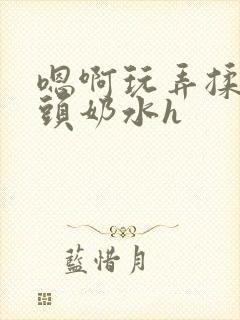 嗯啊玩弄揉
頭奶水h
藍惜月